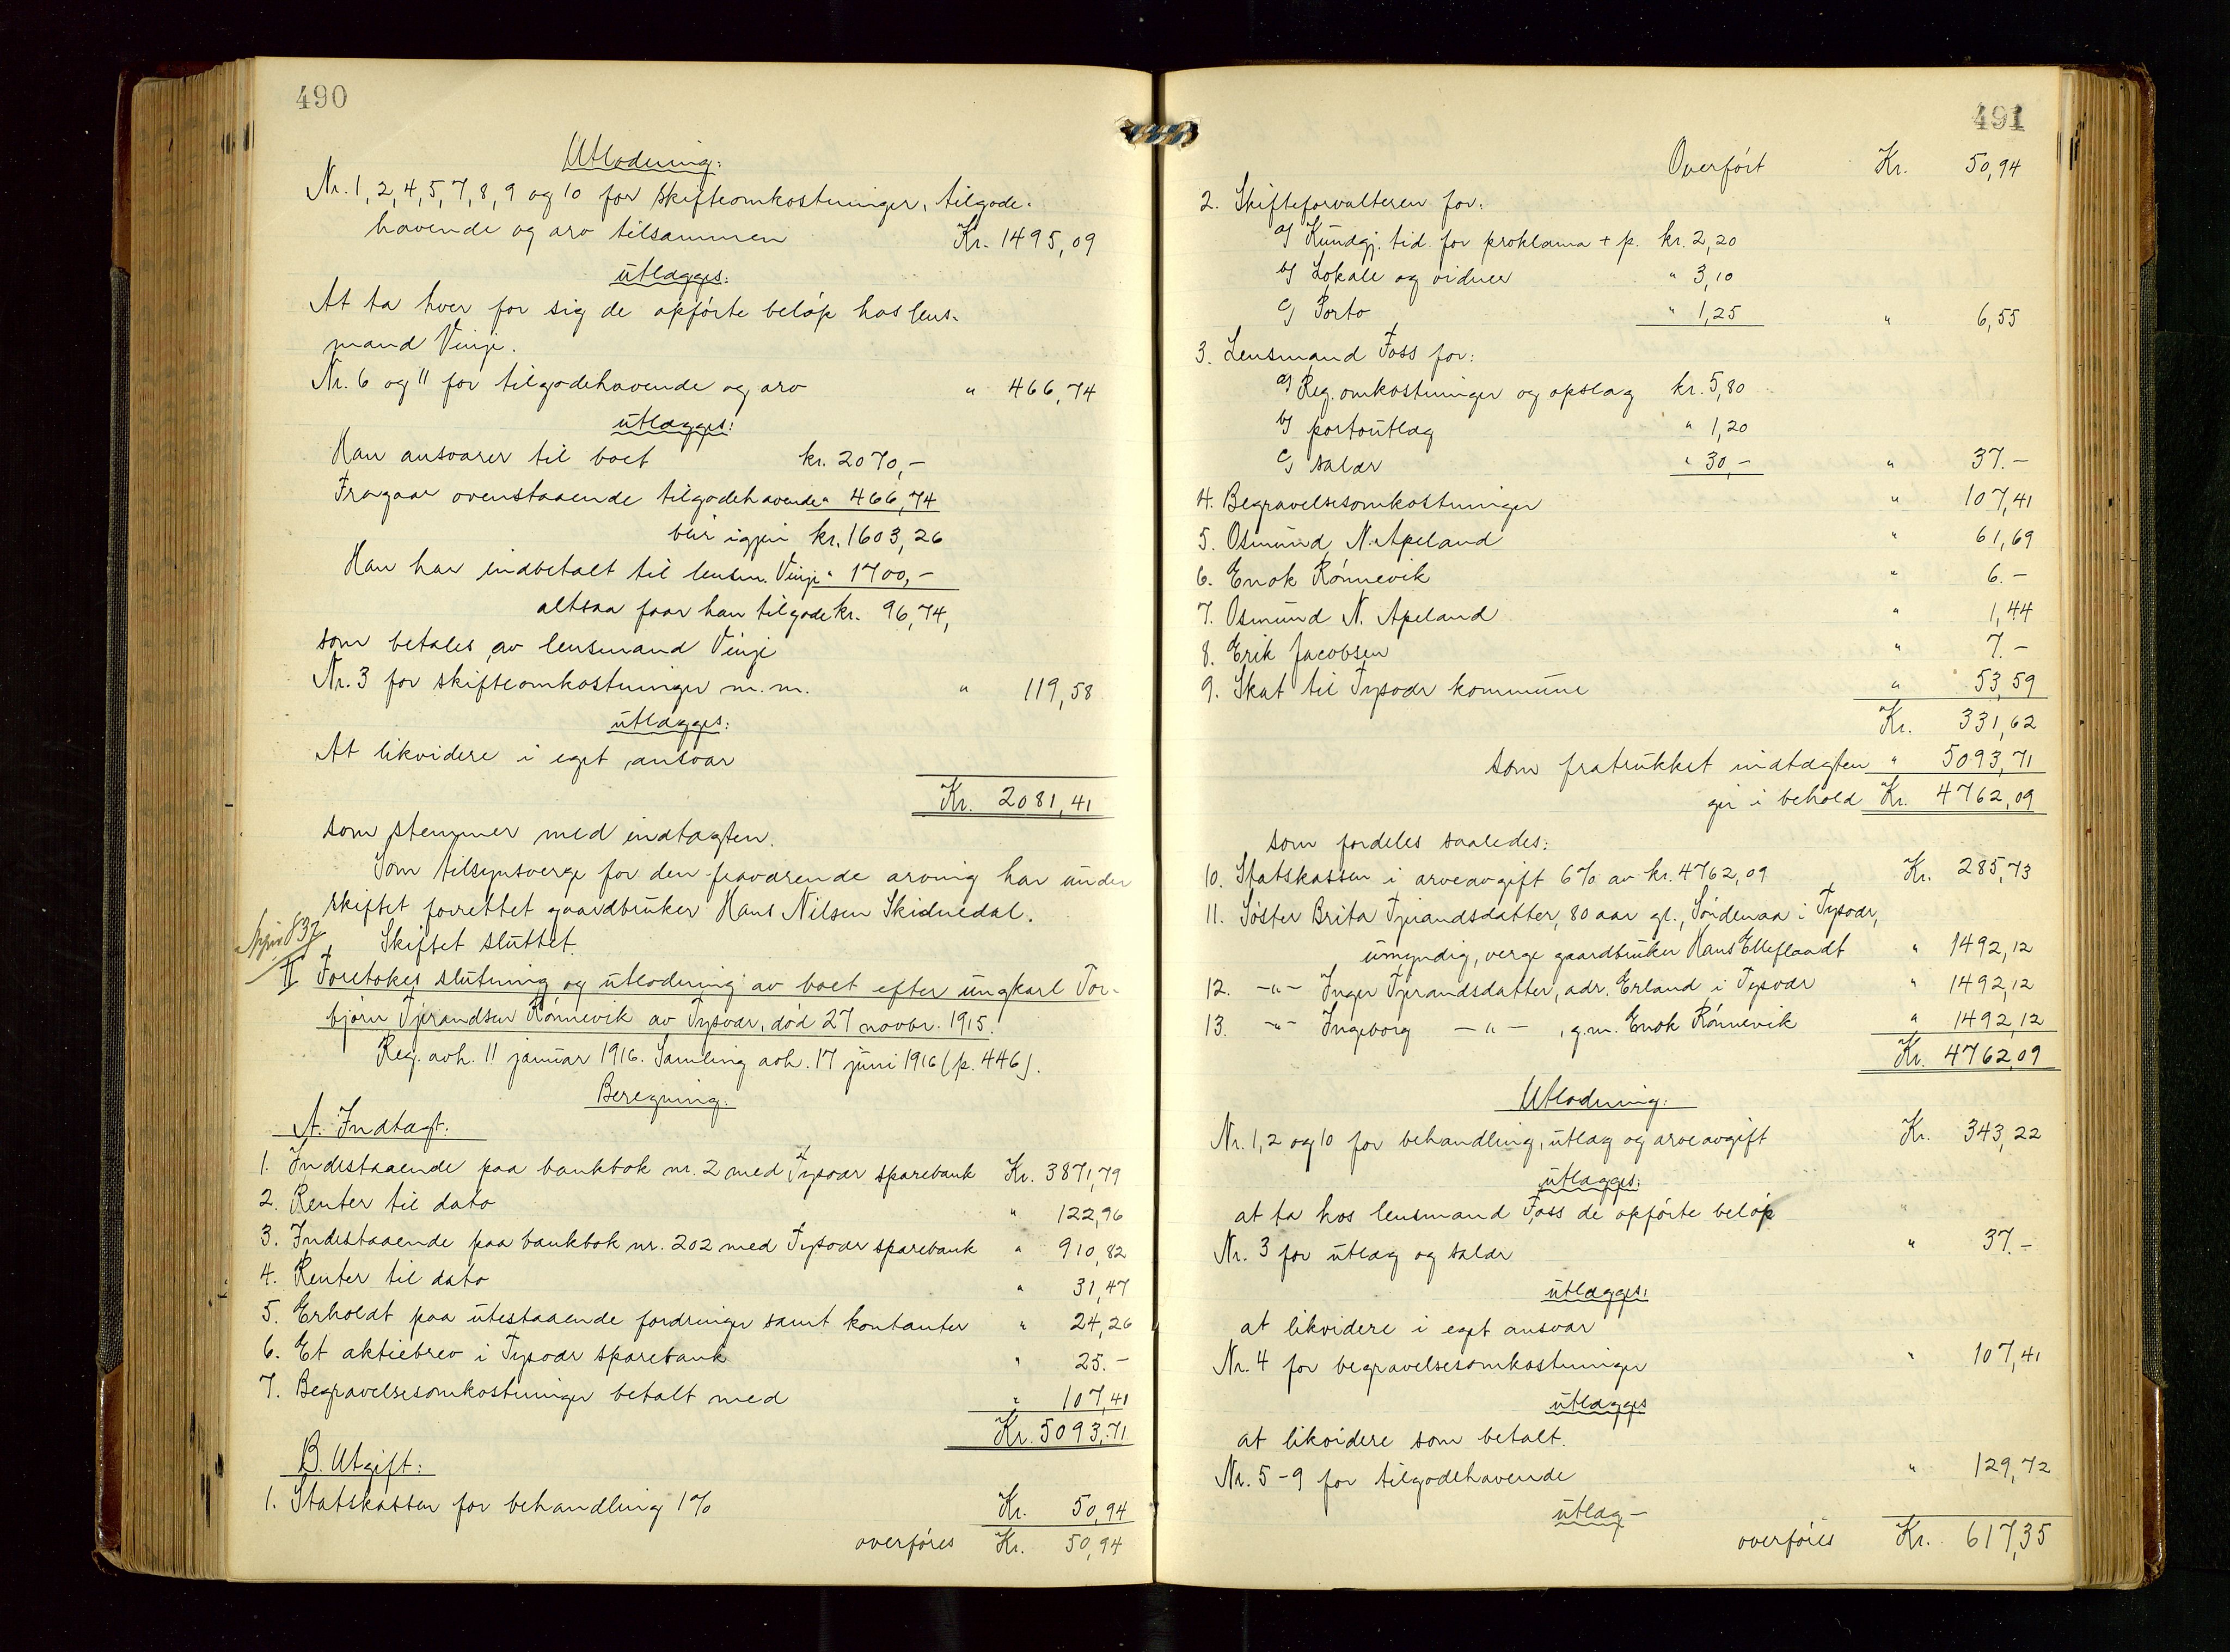 490
Utlodning:
Nr. 1, 2, 4, 5, 7, 8, 9 og 10 for skifteomkostninger, tilgode-
havende og arv tilsammen Kr. 1495,09
utlægges:
At ta hver for sig de opførte beløp hos lens-
mand Vinje.
Nr. 6 og 11 for tilgodehavende og arv " 466,74
utlægges:
Han ansvarer til boet kr. 2070,-
Fragaar ovenstaaende tilgodehavende " 466,74
blir igjen kr. 1603,26
Han har indbetalt til lensm. Vinje " 1700,-
altsaa faar han tilgode kr. 96,74,
som betales av lensmand Vinje
Nr. 3 for skifteomkostninger m.m. " 119,58
utlægges:
At likvidere i eget ansvar
Kr. 2081,41
som stemmer med indtægten.
Som tilsynsverge for den fraværende arving har under
skiftet forrettet gaardbruker Hans Nilsen Skidnedal.
Skiftet sluttet.
837
II Foretokes slutning og utlodning av boet efter ungkarl Tor-
bjørn Tjerandsen Rønnevik av Tysvær, død 27 novbr. 1915.
Reg. avh. 11 januar 1916. Samling avh. 17 juni 1916 (p. 446).
Beregning.
A. Indtægt:
1. Indestaaende paa bankbok nr. 2 med Tysvær sparebank Kr. 3871,79
2. Renter til dato " 122,96
3. Indestaaende paa bankbok nr. 202 med Tysvær sparebank " 910,82
4. Renter til dato " 31,47
5. Erholdt paa utestaaende fordringer samt kontanter " 24,26
6. Et aktiebrev i Tysvær sparebank " 25.-
7. Begravelsesomkostninger betalt med " 107,41
Kr. 5093,71
B. Utgift:
1. Statskassen for behandling 1% Kr. 50,94
overføres Kr. 50,94
491
Overført Kr. 50,94
2. Skifteforvalteren for:
a) Kundgj. tid. for proklama + p. kr. 2,20
b) Lokale og vidner " 3,10
c) Porto " 1,25 " 6,55
3. Lensmand Foss for:
a) Reg. omkostninger og opslag kr. 5,80
b) portoutlæg " 1,20
c) salær " 30,- " 37.-
4. Begravelsesomkostninger " 107,41
5. Osmund N. Apeland " 61,69
6. Enok Rønnevik " 6.-
7. Osmund N. Apeland " 1,44
8. Erik Jacobsen " 7.-
9. Skat til Tysvær kommune " 53,59
Kr. 331,62
som fratrukket indtægten " 5093,71
gir i behold Kr. 4762,09
som fordeles saaledes:
10. Statskassen i arveavgift 6% av kr. 4762,09 Kr. 285,73
11. Søster Brita Tjerandsdatter, 80 aar gl., Søndenaa i Tysvær,
umyndig, verge gaardbruker Hans Elteflaadt " 1492,12
12. -"- Inger Tjerandsdatter, adr. Erland i Tysvær " 1492,12
13. -"- Ingeborg -"- , g.m. Enok Rønnevik " 1492,12
Kr. 4762,09
Utlodning:
Nr. 1, 2 og 10 for behandling, utlæg og arveavgift Kr. 343,22
utlægges:
at ta hos lensmand Foss de opførte beløp
Nr. 3 for utlæg og salær " 37.-
utlægges:
at likvidere i eget ansvar
Nr. 4 for begravelsesomkostninger " 107,41
utlægges
at likvidere som betalt.
Nr. 5-9 for tilgodehavende " 129,72
utlæg-
overføres Kr. 617,35